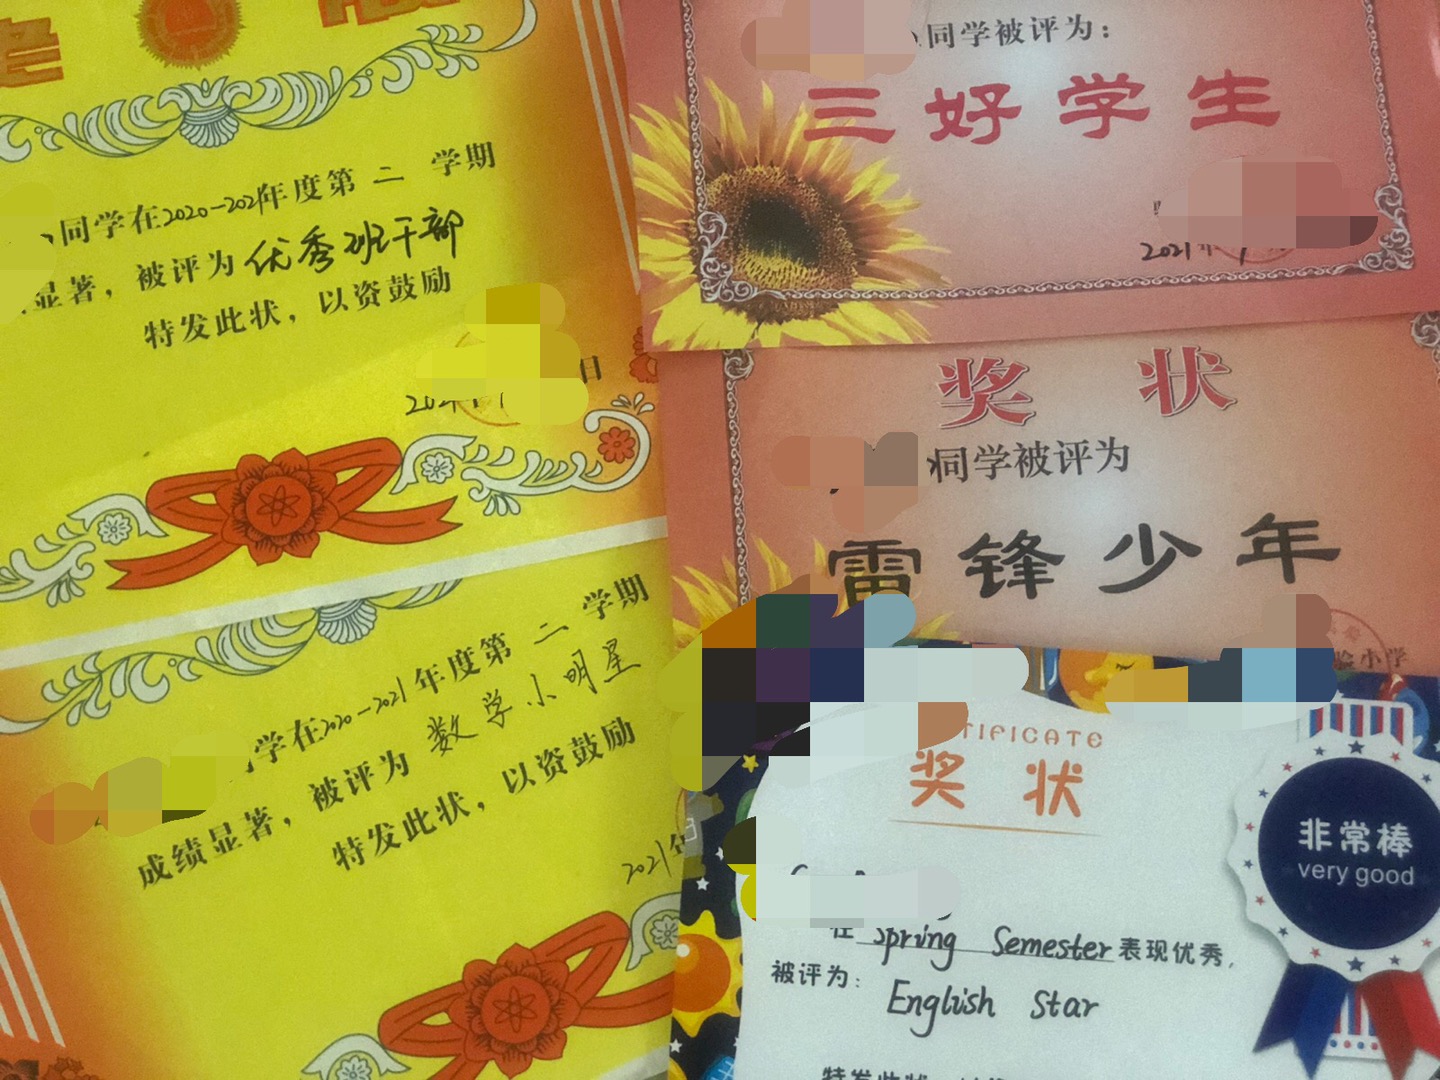 同学在2020-2021年度第 二 学期
显著，被评为 优秀班干部
特发此状，以资鼓励
日
学在2020-2021年度第 二 学期
成绩显著，被评为 数学小明星
特发此状，以资鼓励
2021年
同学被评为：
三好学生
2021年
奖 状
同学被评为
雷锋少年
验小学
TIFICATE
奖 状
在 Spring Semester 表现优秀，
被评为：
English Star
特发此状
非常棒
very good